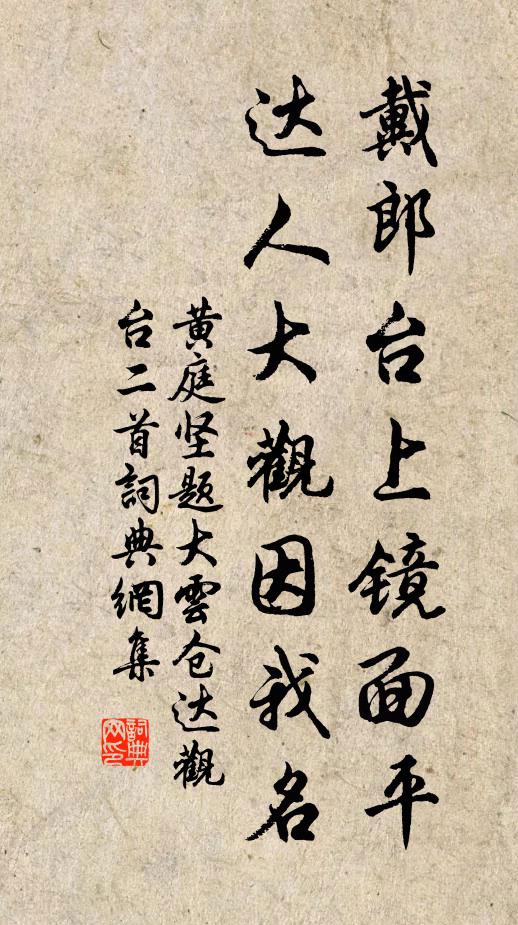 戴郎台上镜面平
达人大觀因我名
黄庭坚题大雲仓达觀
台二首詞典網集
詞典网印